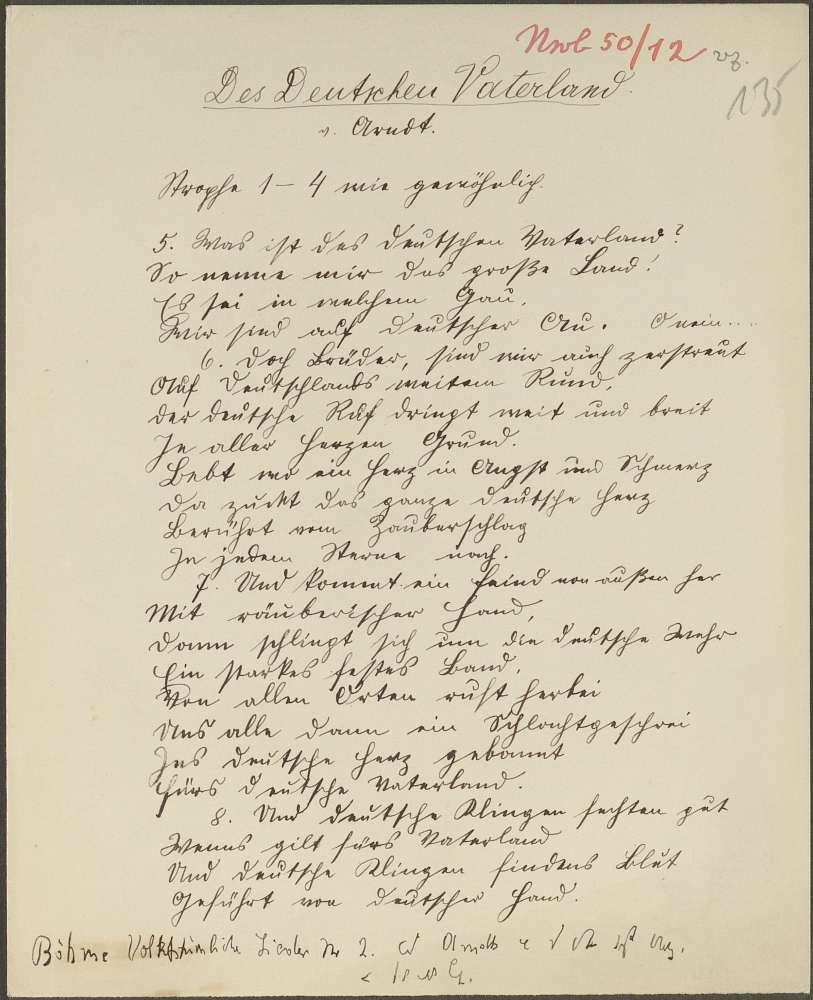 Nwl 50/12 vz.
135
Des Deutschen Vaterland.
v. Arndt.
Strophe 1-4 wie gewöhnlich.
5. Was ist des deutschen Vaterland?
So nenne mir das große Land!
Es sei in welchem Gau,
Wir sind auf deutscher Au. O nein....
6. Doch Brüder, sind wir auch zerstreut
Auf Deutschlands weitem Rund,
Der deutsche Ruf dringt weit und breit
In aller Herzen Grund.
Bebt wo ein Herz in Angst und Schmerz
Da zuckt das ganze deutsche Herz
Berührt vom Zauberschlag
In jedem Sterne nach.
7. Und kommt ein Feind von außen her
Mit räuberischer Hand,
Dann schlingt sich um die deutsche Wehr
Ein starkes festes Band.
Von allen Orten ruft herbei
Uns alle dann ein Schlachtgeschrei
Ins deutsche Herz gebannt
Fürs deutsche Vaterland.
8. Und deutsche Klingen fechten gut
Wenns gilt fürs Vaterland
Und deutsche Klingen findens Blut
Geführt von deutscher Hand.
Böhme Volkstümliche Lieder Nr 2.